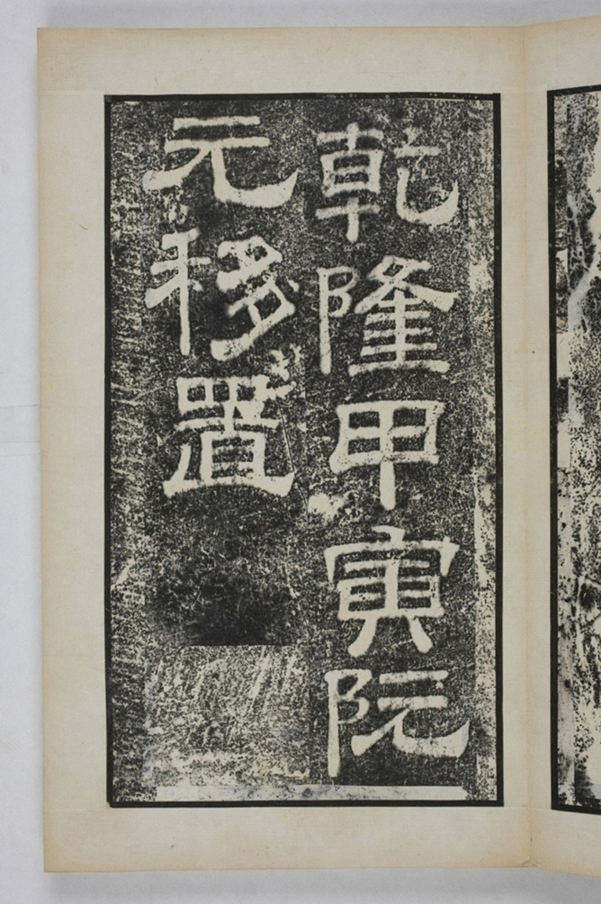 乾隆甲寅阮
元移置